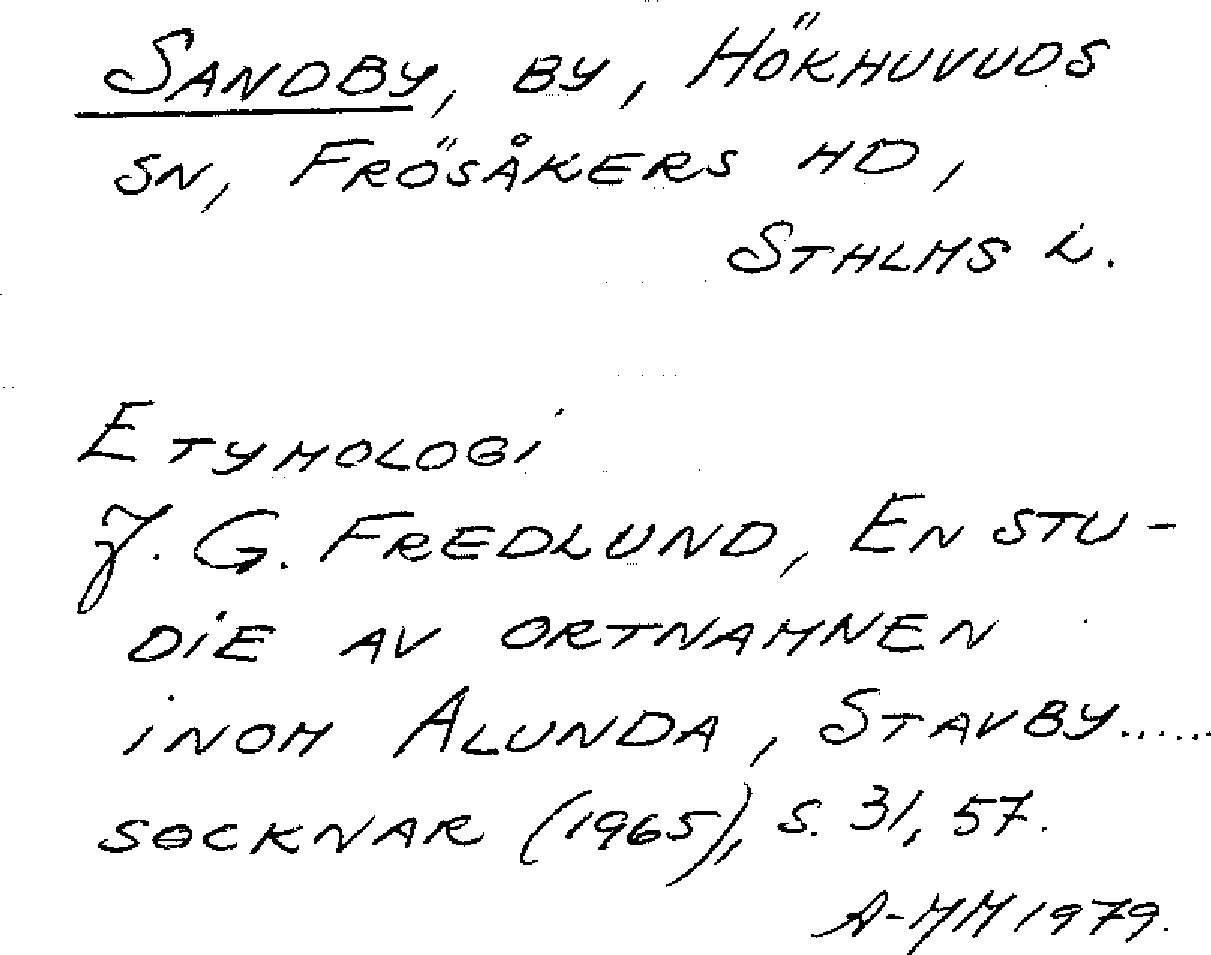 SANDBY, BY, HÖKHUVUDS
SN, FRÖSÅKERS HD,
STHLMS L.
ETYMOLOGI
J. G. FREDLUND, EN STU-
DIE AV ORTNAMNEN
INOM ALUNDA, STAVBY......
SOCKNAR (1965), S. 31, 57.
A-MM 1979.